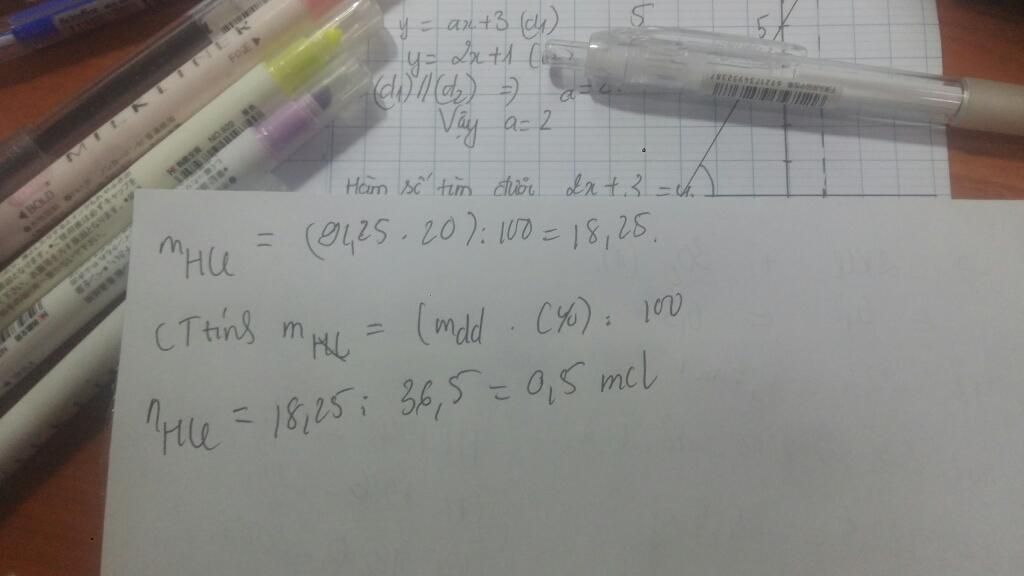 5
y = ax+3 (d1)
5
y = 2x+1
(d1) // (d2) => a =
Vậy a = 2
Hàm số tìm được 2x+3 = y
FINE
MILKLINER
BOLD
NO.500
mHCl = (91,25 . 20) : 100 = 18,25.
CT tính mHCl = (mdd . C%) : 100
nHCl = 18,25 : 36,5 = 0,5 mol